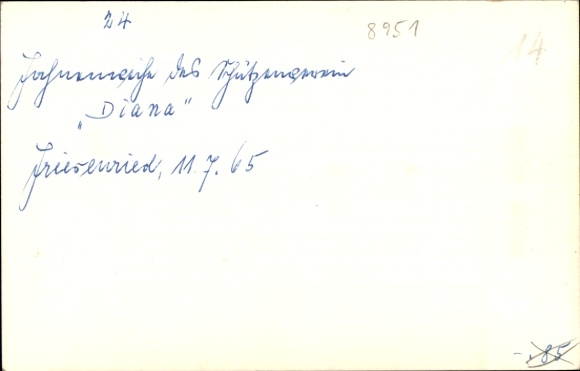 24
8951
14
Fahnenweihe des Schützenverein
„Diana"
Friesenried, 11.7.65
-.85